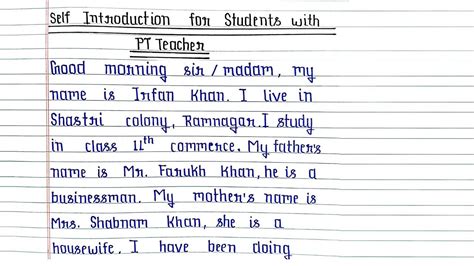 Self Introduction for Students with
PT Teacher
Good morning sir / madam, my
name is Irfan Khan. I live in
Shastri colony, Ramnagar. I study
in class 11th commerce. My father's
name is Mr. Farukh Khan, he is a
businessman. My mother's name is
Mrs. Shabnam Khan, she is a
housewife. I have been doing